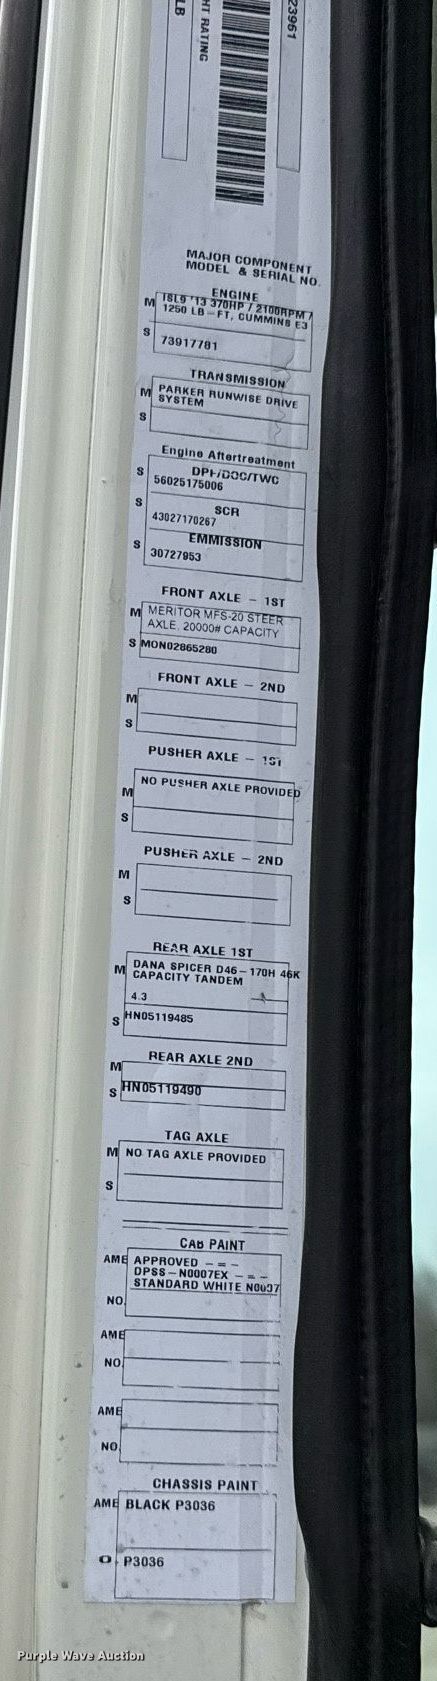 23961
LB
HT RATING
MAJOR COMPONENT
MODEL & SERIAL NO.
ENGINE
M ISL9 '13 370HP / 2100RPM /
1250 LB-FT, CUMMINS E3
S 73917781
TRANSMISSION
M PARKER RUNWISE DRIVE
SYSTEM
S
Engine Aftertreatment
DPF/DOC/TWC
S 56025175006
SCR
S 43027170267
EMMISSION
S 30727953
FRONT AXLE - 1ST
M MERITOR MFS-20 STEER
AXLE, 20000# CAPACITY
S MON02865280
FRONT AXLE - 2ND
M
S
PUSHER AXLE - 1ST
NO PUSHER AXLE PROVIDED
M
S
PUSHER AXLE - 2ND
M
S
REAR AXLE 1ST
M DANA SPICER D46-170H 46K
CAPACITY TANDEM
4.3
S HN05119485
REAR AXLE 2ND
M
S HN05119490
TAG AXLE
M NO TAG AXLE PROVIDED
S
CAB PAINT
AME APPROVED - = -
DPSS-N0007EX - = -
STANDARD WHITE N0037
NO.
AME
NO.
AME
NO
CHASSIS PAINT
AME BLACK P3036
O P3036
Purple Wave Auction